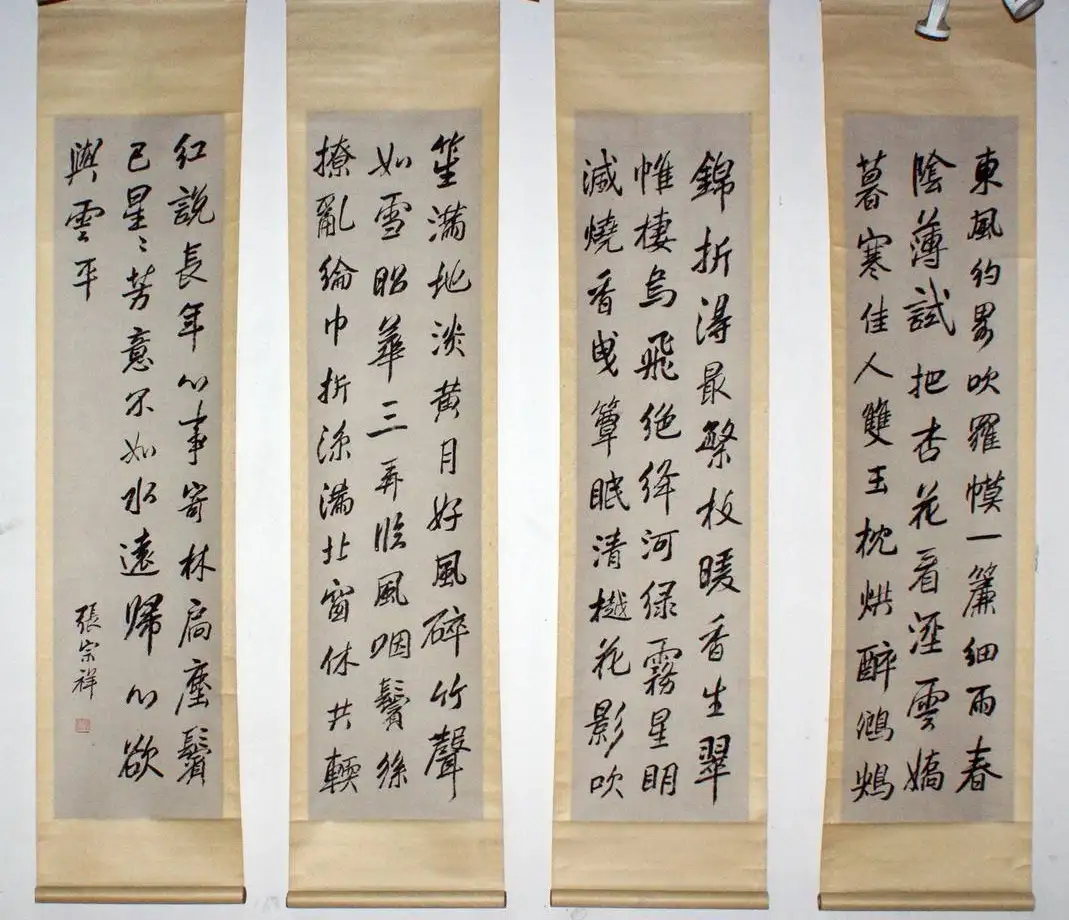 東風約畧吹羅幙一簾細雨春
陰薄試把杏花看溼雲嬌
暮寒佳人雙玉枕烘醉鴛鴦
錦折得最繁枝暖香生翠
帷棲烏飛絕絳河綠霧星明
滅燒香曳簟眠清樾花影吹
笙滿地淡黃月好風碎竹聲
如雪昭華三弄臨風咽鬢絲
撩亂綸巾折涼滿北窗休共軟
紅說長年心事寄林扃塵鬢
已星〻芳意不如水遠歸心欲
與雲平
張宗祥